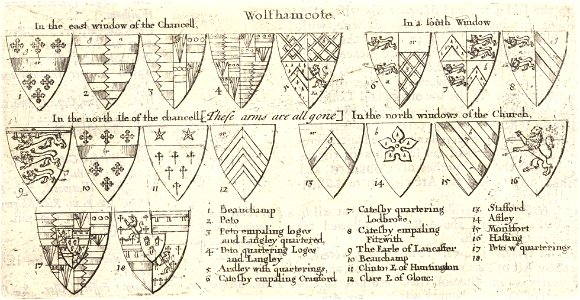 Wolfhamcote.
In the east window of the Chancell,
In a south Window
1 2 3 4 5 6 7 8
In the north Ile of the chancell [These arms are all gone] In the north windows of the Church,
9 10 11 12 13 14 15 16
17 18
1. Beauchamp
2. Peto
3 Peto empaling loges
and Langley quartered,
4 Peto quartering Loges
and Langley
5 Ardley with quarterings,
6 Catesby empaling Cranford
7 Catesby quartering
Lodbroke,
8 Catesby empaling
Fitzwith
9 The Earle of Lancaster
10 Beauchamp
11 Clinton E of Huntington
12 Clare E of Glouc:
13 Stafford
14 Astley
15 Monfort
16 Hasting
17 Peto wth quarterings
18.